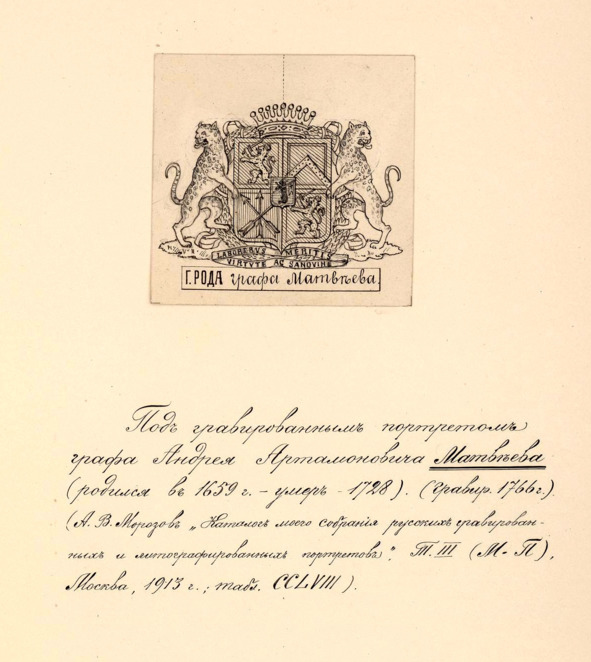 LABORERVS MERITIS
VIRTVTE AC SANGVINE
Г. РОДА графа Матвѣева
Подъ гравированнымъ портретомъ
графа Андрея Артамоновича Матвѣева
(родился въ 1659 г. – умеръ - 1728). (Гравир. 1766 г.).
(А. В. Морозовъ „Каталогъ моего собранія русскихъ гравирован-
ныхъ и литографированныхъ портретовъ". Т. III (М - П),
Москва, 1913 г.; табл. CCLVIII).